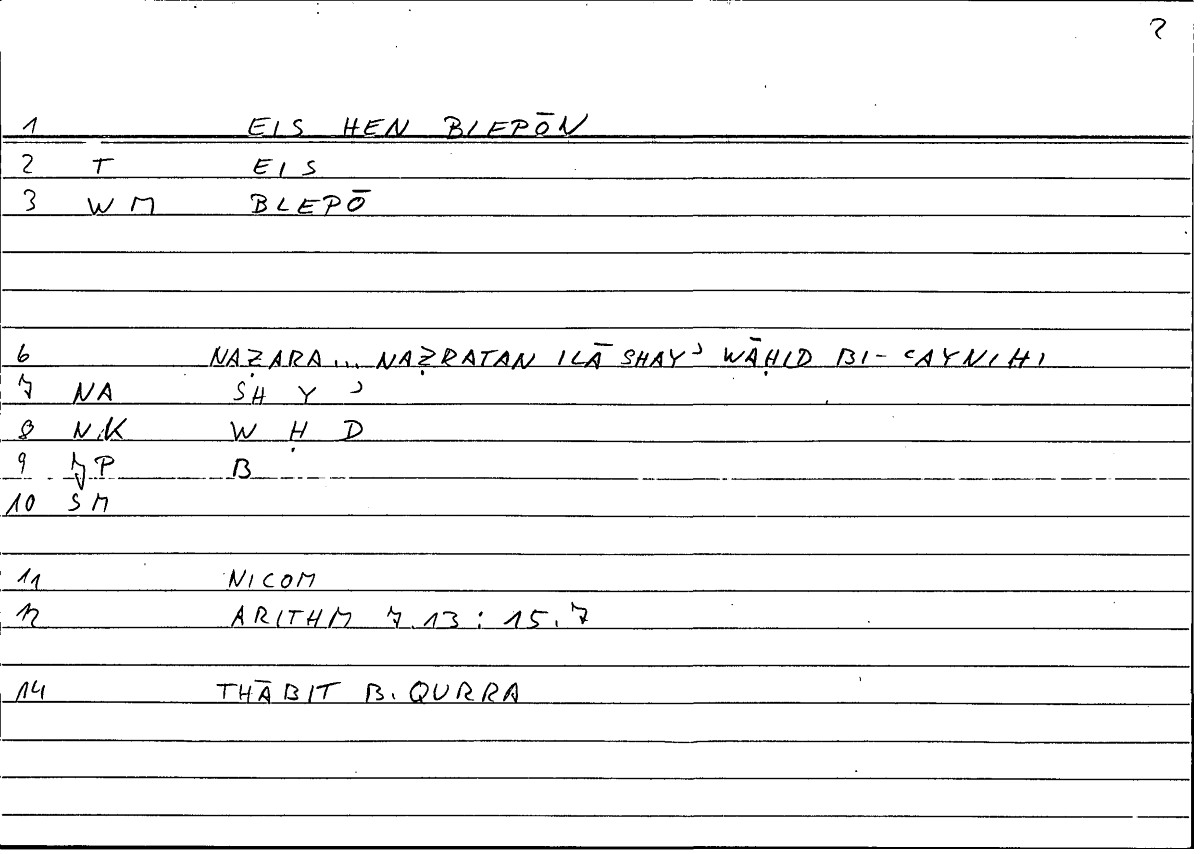 2
1 EIS HEN BLEPŌN
2 T EIS
3 WM BLEPŌ
6 NAẒARA... NAẒRATAN ILĀ SHAYʾ WĀḤID BI-ʿAYNIHI
7 NA SHYʾ
8 NK WḤD
9 7P B
10 SM
11 NICOM
12 ARITHM 7.13 : 15.7
14 THĀBIT B. QURRA